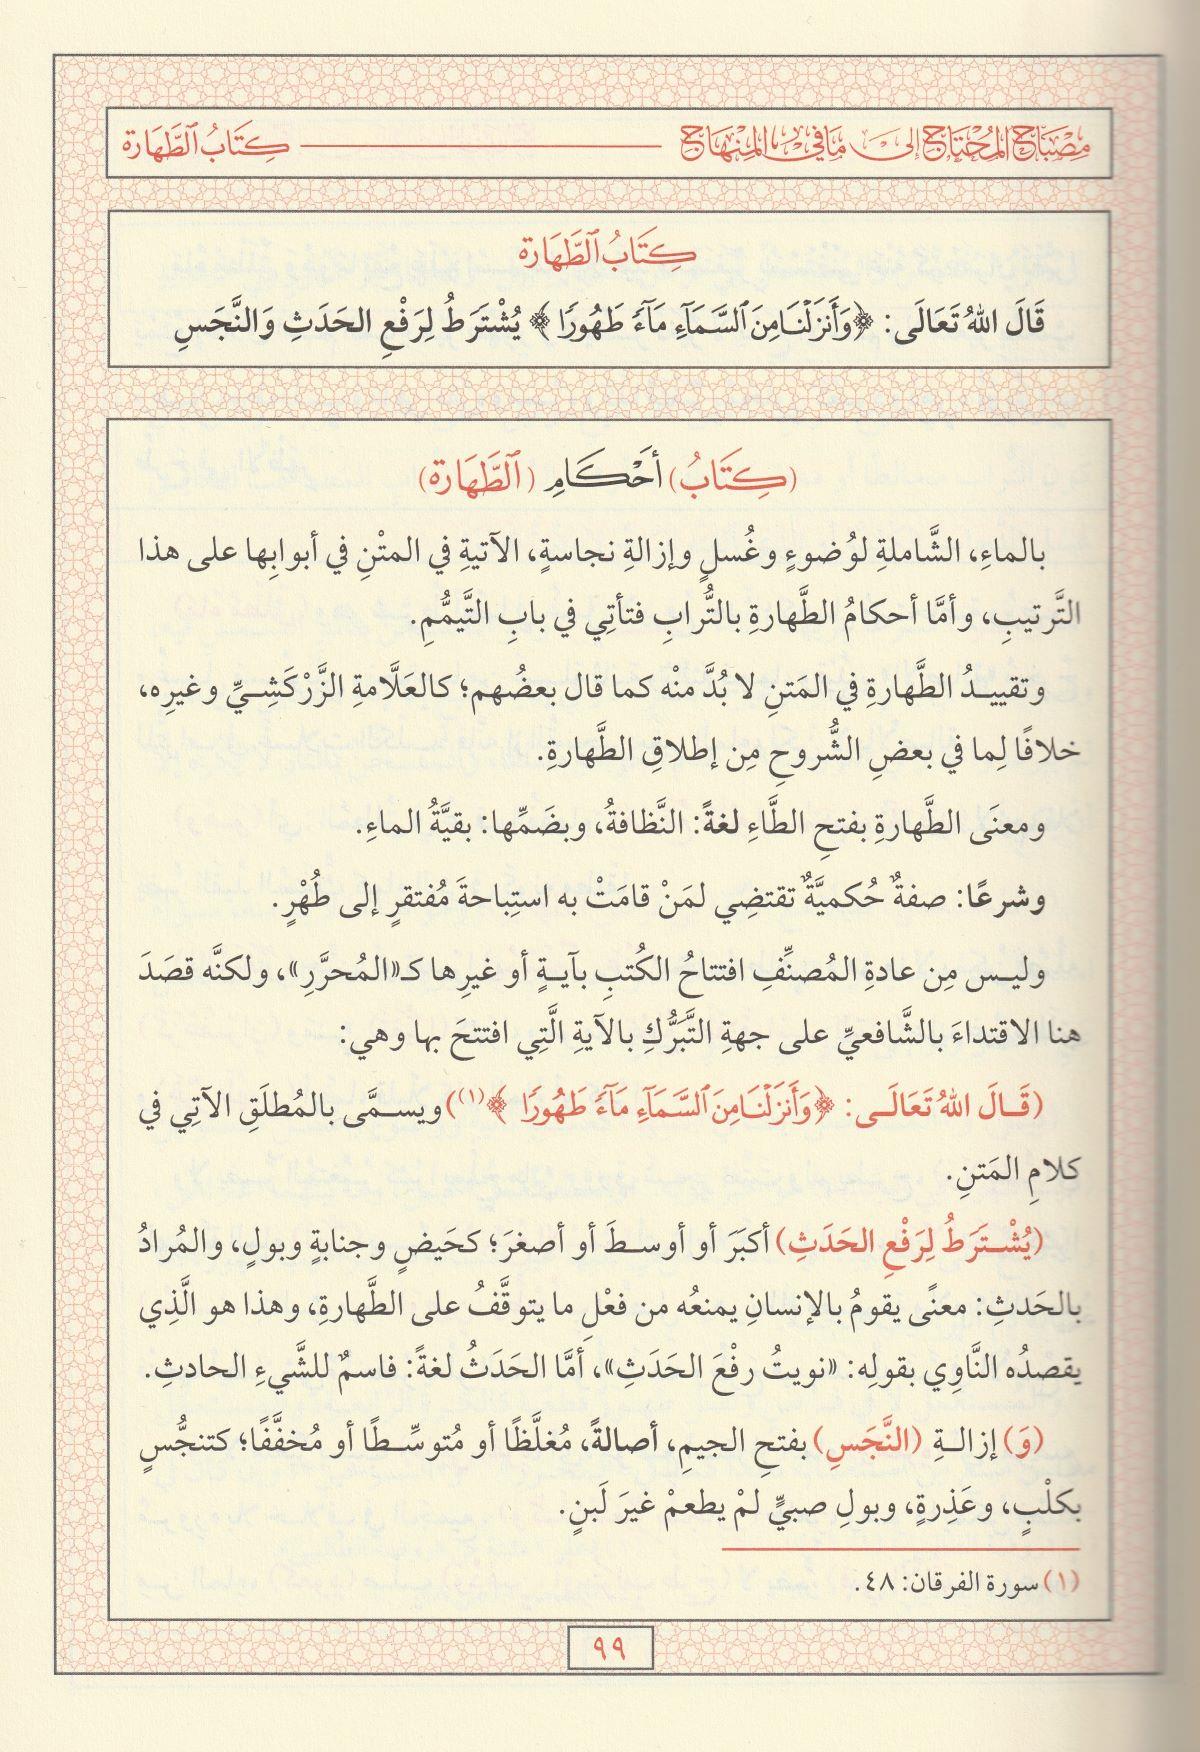 مِصْبَاحُ المُحْتَاجِ إِلَى مَا فِي المِنْهَاجِ كِتَابُ الطَّهَارَة
كِتَابُ الطَّهَارَة
قَالَ اللهُ تَعَالَى: ﴿وَأَنزَلْنَا مِنَ ٱلسَّمَآءِ مَآءً طَهُورًا﴾ يُشْتَرَطُ لِرَفْعِ الحَدَثِ وَالنَّجَسِ
(كِتَابُ) أَحْكَامِ (الطَّهَارَة)
بالماءِ، الشَّاملةِ لوُضوءٍ وغُسلٍ وإزالةِ نجاسةٍ، الآتيةِ في المتْنِ في أبوابِها على هذا
التَّرتيبِ، وأمَّا أحكامُ الطَّهارةِ بالتُّرابِ فتأتِي في بابِ التَّيمُّمِ.
وتقييدُ الطَّهارةِ في المَتنِ لا بُدَّ منْه كما قال بعضُهم؛ كالعَلَّامةِ الزَّرْكَشِيِّ وغيرِه،
خلافًا لِما في بعضِ الشُّروحِ مِن إطلاقِ الطَّهارةِ.
ومعنَى الطَّهارةِ بفتحِ الطَّاءِ لغةً: النَّظافةُ، وبضَمِّها: بقيَّةُ الماءِ.
وشرعًا: صفةٌ حُكميَّةٌ تقتضِي لمَنْ قامَتْ به استِباحةَ مُفتقرٍ إلى طُهْرٍ.
وليس مِن عادةِ المُصنِّفِ افتتاحُ الكُتبِ بآيةٍ أو غيرِها كـ«المُحرَّرِ»، ولكنَّه قصَدَ
هنا الاقتداءَ بالشَّافعيِّ على جهةِ التَّبَرُّكِ بالآيةِ الَّتِي افتتحَ بها وهي:
(قَالَ اللهُ تَعَالَى: ﴿وَأَنزَلْنَا مِنَ ٱلسَّمَآءِ مَآءً طَهُورًا﴾(١)) ويسمَّى بالمُطلَقِ الآتِي في
كلامِ المَتنِ.
(يُشْتَرَطُ لِرَفْعِ الحَدَثِ) أكبَرَ أو أوسطَ أو أصغرَ؛ كحَيضٍ وجنابةٍ وبولٍ، والمُرادُ
بالحَدثِ: معنًى يقومُ بالإنسانِ يمنعُه من فعْلِ ما يتوقَّفُ على الطَّهارةِ، وهذا هو الَّذِي
يقصدُه النَّاوِي بقولِه: «نويتُ رفْعَ الحَدَثِ»، أمَّا الحَدَثُ لغةً: فاسمٌ للشَّيءِ الحادثِ.
(وَ) إزالةِ (النَّجَسِ) بفتحِ الجيمِ، أصالةً، مُغلَّظًا أو مُتوسِّطًا أو مُخفَّفًا؛ كتنجُّسٍ
بكلْبٍ، وعَذِرةٍ، وبولِ صبيٍّ لمْ يطعمْ غيرَ لَبنٍ.
(١) سورة الفرقان: ٤٨.
٩٩